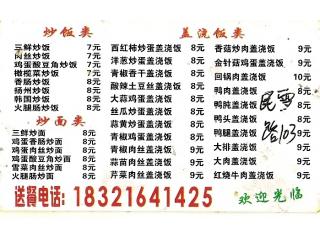 炒饭类
三鲜炒饭 7元
肉丝炒饭 7元
鸡蛋酸豆角炒饭 7元
橄榄菜炒饭 7元
香肠炒饭 8元
扬州炒饭 8元
韩国炒饭 8元
火腿肠炒饭 8元
炒面类
三鲜炒面 8元
鸡蛋香肠炒面 8元
鸡蛋肉丝炒面 8元
鸡蛋酸豆角炒面 8元
雪菜肉丝炒面 8元
火腿肠炒面 8元
盖浇饭类
西红柿炒蛋盖浇饭 8元
洋葱炒蛋盖浇饭 8元
青椒香干盖浇饭 8元
酸辣土豆丝盖浇饭 8元
大蒜鸡蛋盖浇饭 8元
丝瓜炒蛋盖浇饭 8元
黄瓜炒蛋盖浇饭 8元
青椒肉丝盖浇饭 9元
大蒜肉丝盖浇饭 9元
蒜苗肉丝盖浇饭 9元
芹菜肉丝盖浇饭 9元
香菇炒肉盖浇饭 9元
金针菇鸡蛋盖浇饭 9元
回锅肉盖浇饭 10元
鸭肉盖浇饭
鸭肫盖浇饭
鸭头盖浇饭
鸭腿盖浇饭
大排盖浇饭 9元
大肉盖浇饭 9元
红烧牛肉盖浇饭 9元
路103
送餐电话: 18321641425
欢迎光临